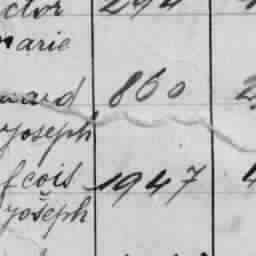 ctor 294
Marie
nard 860 2
Joseph
fcois 1947 4
Joseph